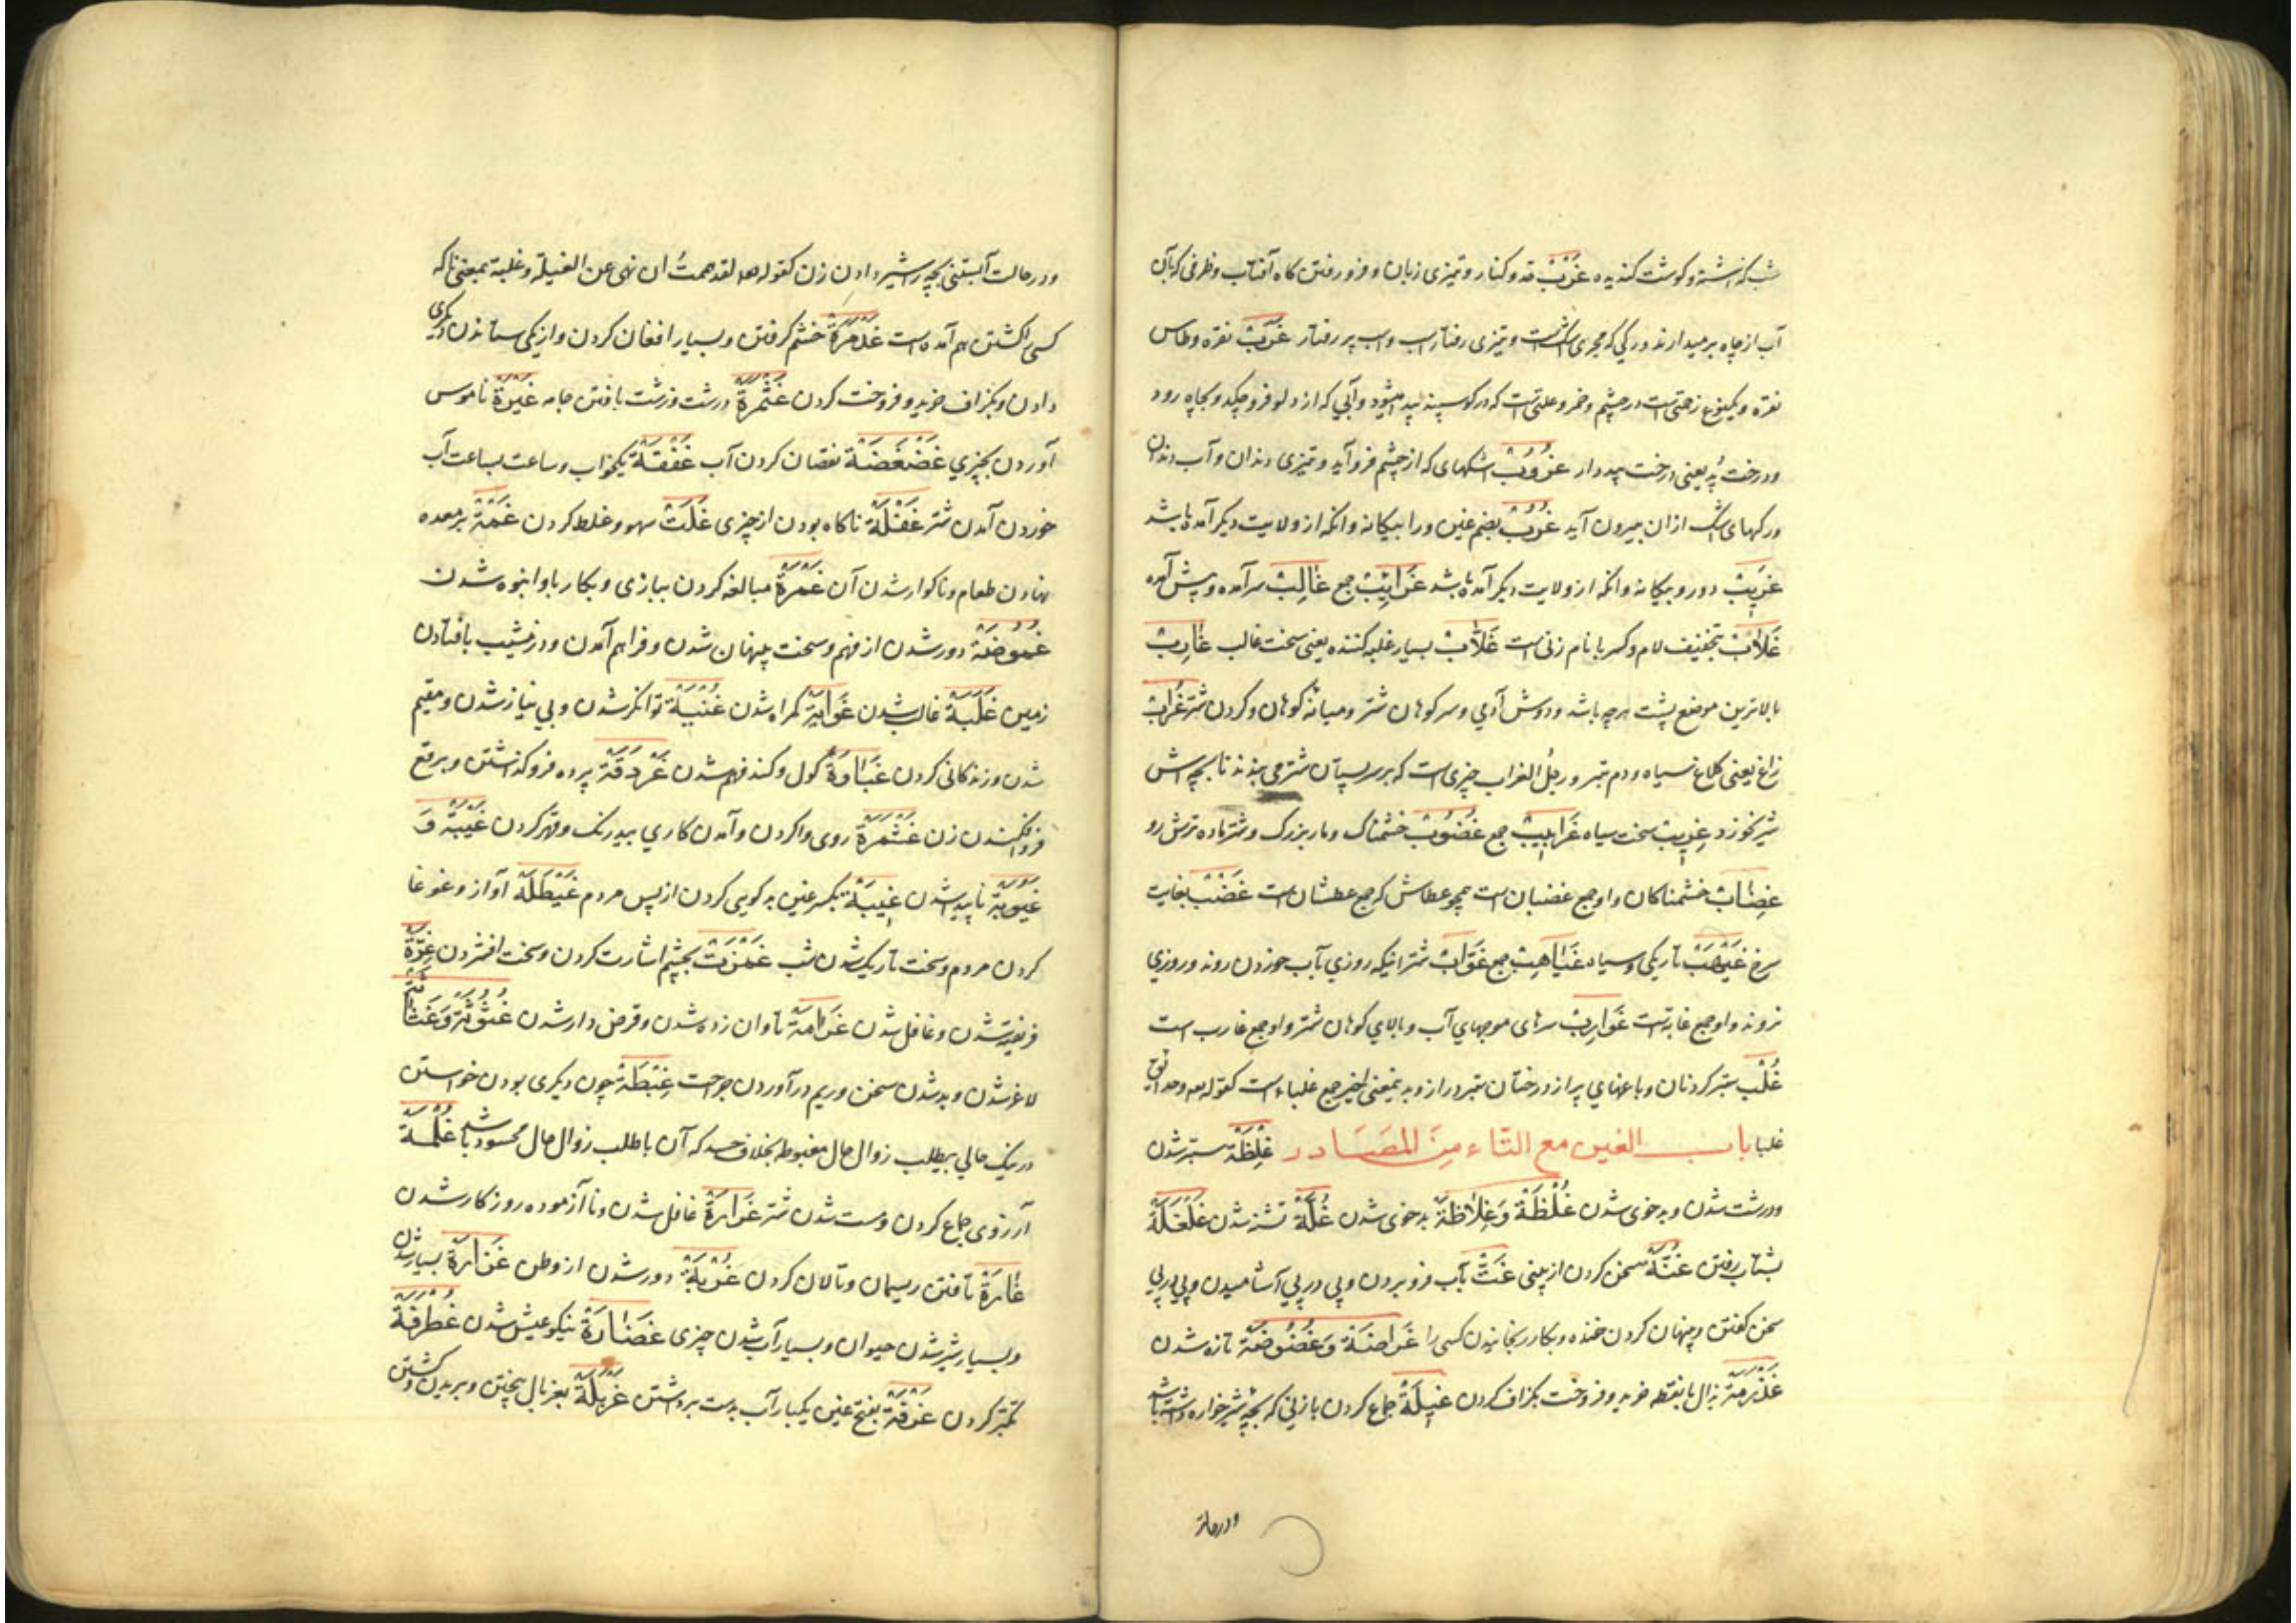 شب گذشته و گوشت گندیده غَرْبْ حد و کنار و تیزی زبان و فرو رفتن گاه آفتاب و ظرفی که بآن
آب از چاه برمیدارند و رگی که مجری اشک است و تیزی رفتار اسب و اسب پر رفتار غَرَبْ نقره و طاس
نقره و یکنوع زحمتی است در چشم و خمر و علتی است که در گوسپند پیدا میشود و آبی که از دلو فرو چکد و بچاه رود
و درخت پُد یعنی درخت پیددار غُرُوبْ اشکهای که از چشم فرو آید و تیزی دندان و آب دندان
و رکهای که اشک ازان بیرون آید غُرُبْ بضم غین و را بیکانه و انکه از ولایت دیگر آمده باشد
غَرِیبْ دور و بیکانه و انکه از ولایت دیگر آمده باشد غَرَایِبْ جمع غَالِبْ سرآمده و پیش آمده
غَلَابْ بتخفیف لام و کسر با نام زنی است غَلَّابْ بسیار غلبه کننده یعنی سخت غالب غَارِبْ
بالاترین موضع پشت هرچه باشد و دوش آدمی و سر کوهان شتر و میانه کوهان و کردن شتر غُرَابْ
زاغ یعنی کلاغ سیاه و دم تبر و رجلُ الغراب چیزی است که بر سر پستان شتر می بندند تا بچه اش
شیر نخورد غِربِیبْ سخت سیاه غَرَابِیبْ جمع غَضُوبْ خشمناک و مار بزرگ و شتر ماده ترش رو
غِضَابْ خشمناکان و او جمع غضبان است همچو عطاش که جمع عطشان است غَضْبْ بغایت
سرخ غَیْهَبْ تاریکی و سیاه غَیَاهِبْ جمع غَوَابْ شترانیکه روزی بآب خوردن روند و روزی
نروند و او جمع غابه است غَوَارِبْ سرهای موجهای آب و بالای کوهان شتر و او جمع غارب است
غُلْب ستبر کردنان و باغهای پر از درختان ستبر دراز و بدین معنی اخیر جمع غلباء است کقوله تعه و حدائق
غلبا باب الغین مع التّاء مِنَ المصَادر غِلْظَة ستبر شدن
و درشت شدن و بدخوی شدن غُلْظَة وَغِلَاظَة بدخوی شدن غُلَّة تشنه شدن غَلْغَلَة
بشتاب رفتن غُنَّة سخن کردن از بینی غَتّ بآب فرو بردن و پی در پی آشامیدن و پی در پی
سخن کفتن و پنهان کردن خنده و بکار رنجانیدن کسی را غَضَاضَة وَغُضُوضَة تازه شدن
غَذْرَمَة بذال بانقطه خرید و فروخت بکزاف کردن غِیلَة جماع کردن با زنی که بچه شیرخواره داشته باشد
و در حالت
و در حالت آبستنی بچه را شیر دادن زن کقوله صلعم لقد هممتُ ان نهی عن الغیلة و غیلة بمعنی ناکه
کسی را کشتن هم آمده است غَذْمَرَة خشم کرفتن و بسیار افغان کردن و از یکی ستاندن و دیکری
دادن و بکزاف خرید و فروخت کردن غَثْمَرَة درشت درشت بافتن جامه غَیْرَة ناموس
آوردن بچیزی غَضْغَضَة نقصان کردن آب غَفْقَة یکخواب و ساعت بساعت بآب
خوردن آمدن شتر غَفْلَة ناکاه بودن از چیزی غَلَتْ سهو و غلط کردن غَمْتَة بر معده
نهادن طعام و ناکوار شدن آن غَمْرَة مبالغه کردن ببازی و بکار باو انبوه شدن
غُمُوضَة دور شدن از فهم و سخت پنهان شدن و فراهم آمدن و در نشیب بافتادن
زمین غَلَبَة غالب شدن غَوَایَة کمراه شدن غُنْیَة توانکر شدن و بی نیاز شدن و مقیم
شدن و زندکانی کردن غَبَاوَة کول و کندفهم شدن غَرْدَقَة پرده فروکذاشتن و برقع
فروافکندن زن غَشْمَرَة روی واکردن و آمدن کاری بیدرنک و قهر کردن غَیْبَة وَ
غَیْبُوبَة ناپیدا شدن غِیبَة بکسر غین بدکویی کردن از پس مردم غَیْطَلَة آواز و غوغا
کردن مردم و سخت تاریک شدن شب غَمْزَتْ بچشم اشارت کردن و سخت افشردن غِرَّة
فریفته شدن و غافل شدن غَرَامَة تاوان زده شدن و قرض دار شدن غُثُوثَة وَغَثَاثَة
لاغر شدن و بد شدن سخن و ریم در آوردن جراحت غِبْطَة چون دیکری بودن خواستن
در نیک حالی بی طلب زوال حال مغبوط بخلاف حسد که آن با طلب زوال حال محسود باشد غُلْمَة
آرزوی جماع کردن و مست شدن شتر غَرَارَة غافل شدن و ناآزموده روزکار شدن
غَارَة تافتن ریسمان و تالان کردن غُرْبَة دور شدن از وطن غَزَارَة بسیار شدن
و بسیار شیر شدن حیوان و بسیار آب شدن چیزی غَضَارَة نیکوعیش شدن غُطرفَة
تکبّر کردن غَرْفَة بفتح غین یکبار آب بدست برداشتن غَرْبَلَة بغربال بیختن و بریدن و کشتن